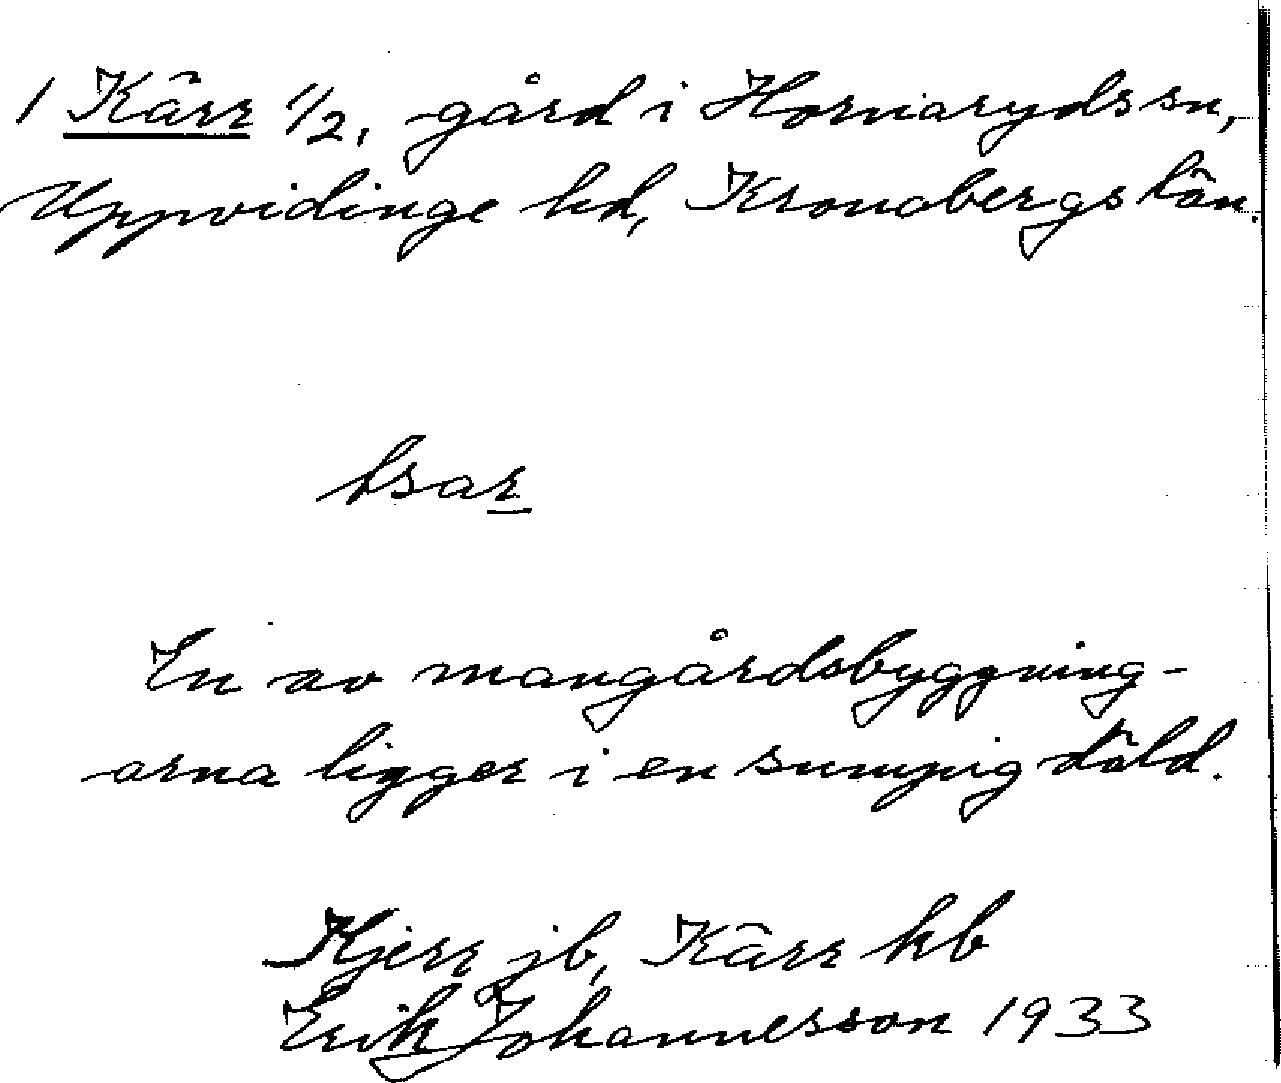 1 Kärr 1/2, gård i Hornaryds sn,
Uppvidinge hd, Kronobergs län.
En av mangårdsbyggning-
arna ligger i en sumpig däld.
Kjerr jb, Kärr kb
Erik Johannesson 1933